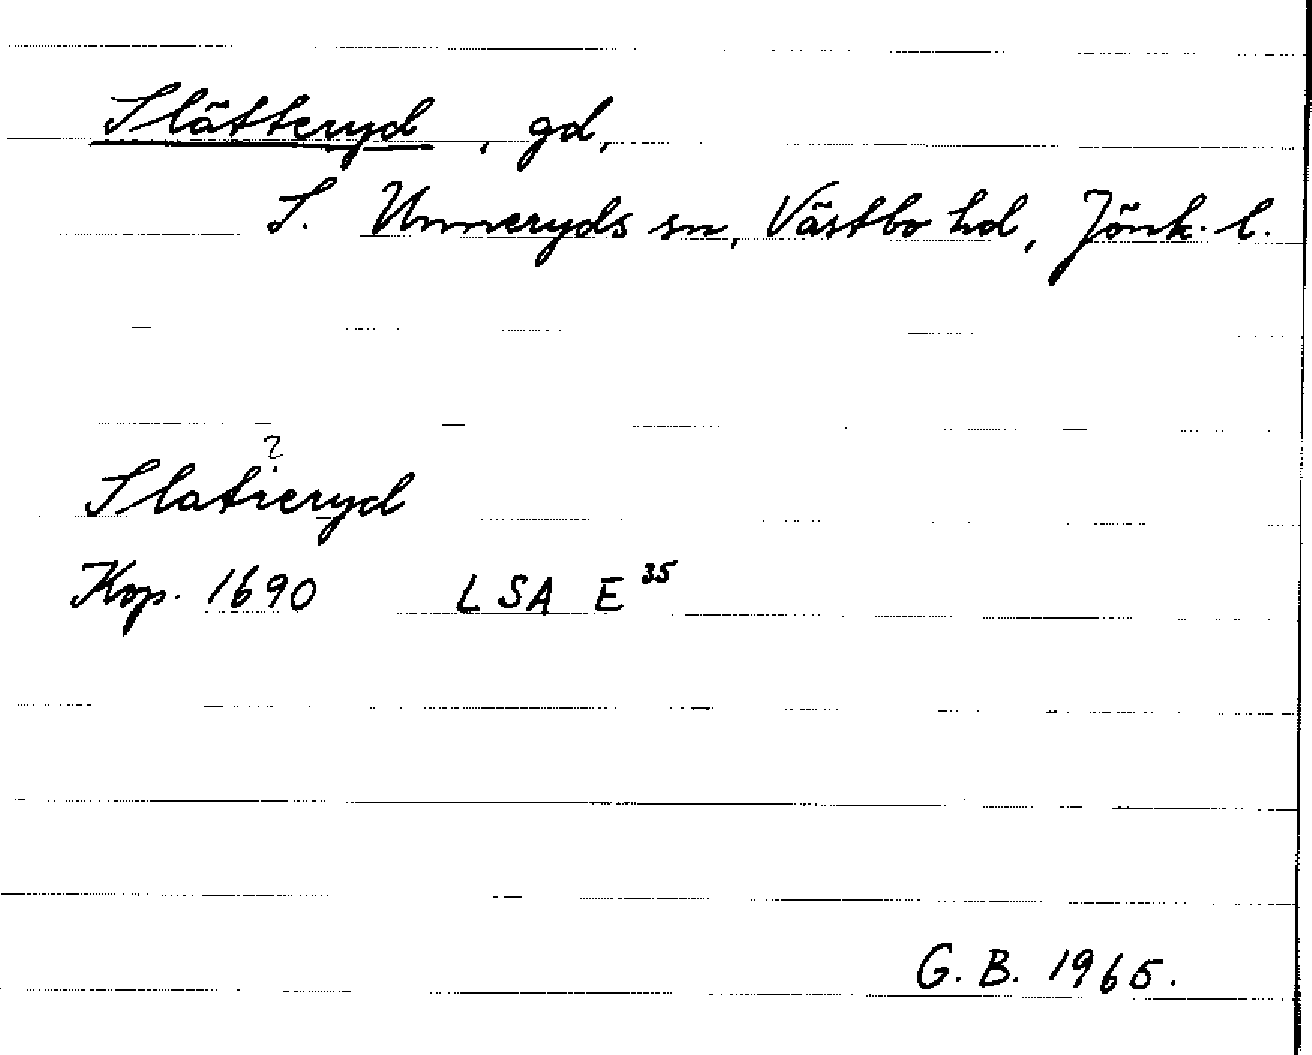 Slätteryd, gd,
S. Unneryds sn, Västbo hd, Jönk. l.
?
Slatieryd
Kop. 1690 LSA E 35
G. B. 1965.